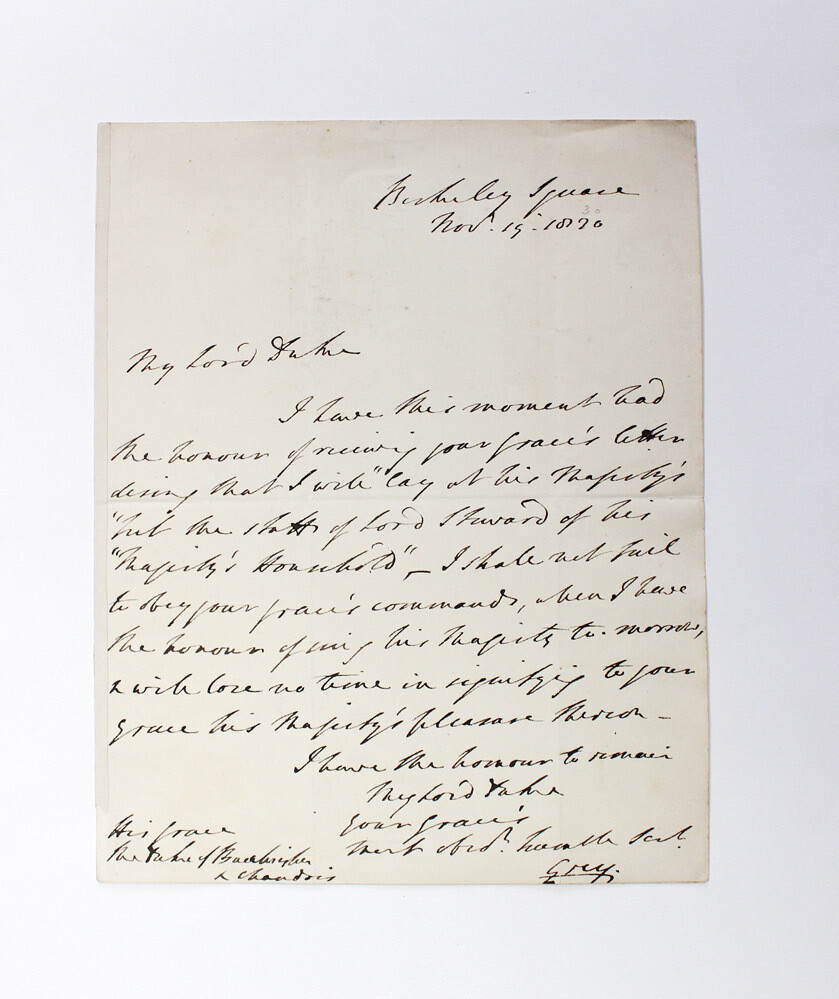 Berkeley Square
30
Novr. 19. 1830
My Lord Duke
I have this moment had
the honour of receiving your Grace's letter
desiring that I will "lay at his Majesty's
"feet the staff of Lord Steward of his
"Majesty's Household"_ I shall not fail
to obey your Grace's commands, when I have
the honour of seeing his Majesty to-morrow,
& will lose no time in signifying to your
Grace his Majesty's pleasure thereon_
I have the honour to remain
My Lord Duke
Your Grace's
most obedt. humble Sert.
Grey.
His Grace
The Duke of Buckingham
& Chandois